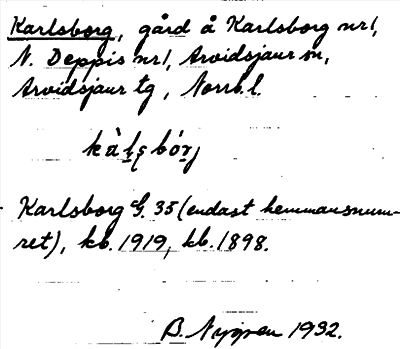 Karlsborg, gård å Karlsborg nr 1,
N. Deppis nr 1, Arvidsjaur sn,
Arvidsjaur tg, Norrb. l.
Karlsborg G. 35 (endast hemmansnum-
ret), kb. 1919, kb. 1898.
B. Nygren 1932.